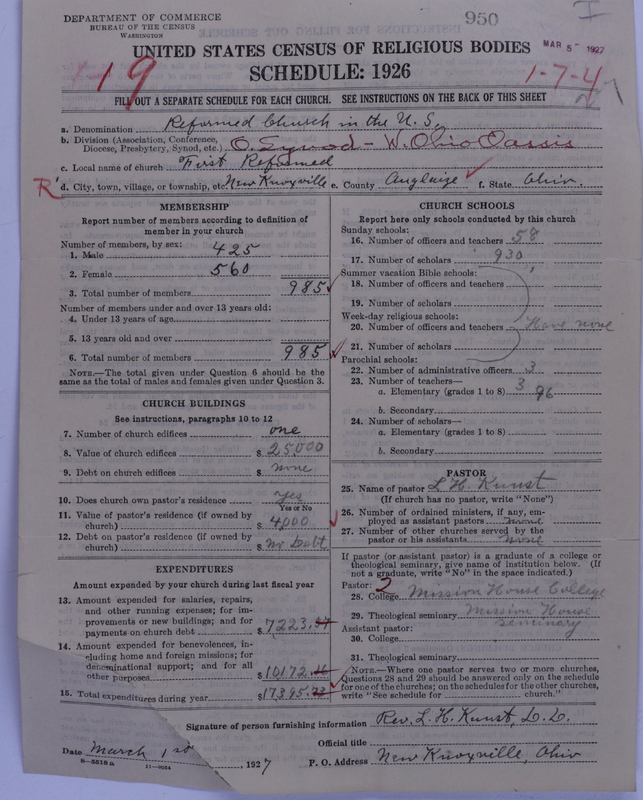 DEPARTMENT OF COMMERCE
BUREAU OF THE CENSUS
WASHINGTON
950
I
UNITED STATES CENSUS OF RELIGIOUS BODIES
MAR 5 1927
SCHEDULE: 1926
19
1-7-4
FILL OUT A SEPARATE SCHEDULE FOR EACH CHURCH. SEE INSTRUCTIONS ON THE BACK OF THIS SHEET
a. Denomination Reformed Church in the U. S.
b. Division (Association, Conference, Diocese, Presbytery, Synod, etc.) O. Synod - W. Ohio Classis
c. Local name of church First Reformed
R d. City, town, village, or township, etc. New Knoxville e. County Auglaize f. State Ohio
MEMBERSHIP
Report number of members according to definition of
member in your church
Number of members, by sex:
1. Male 425
2. Female 560
3. Total number of members 985
Number of members under and over 13 years old:
4. Under 13 years of age
5. 13 years old and over
6. Total number of members 985
NOTE.—The total given under Question 6 should be the
same as the total of males and females given under Question 3.
CHURCH BUILDINGS
See instructions, paragraphs 10 to 12
7. Number of church edifices one
8. Value of church edifices $ 25,000
9. Debt on church edifices $ none
10. Does church own pastor's residence yes
Yes or No
11. Value of pastor's residence (if owned by
church) $ 4,000
12. Debt on pastor's residence (if owned by
church) $ no Debt
EXPENDITURES
Amount expended by your church during last fiscal year
13. Amount expended for salaries, repairs,
and other running expenses; for im-
provements or new buildings; and for
payments on church debt $ 7223.
14. Amount expended for benevolences, in-
cluding home and foreign missions; for
denominational support; and for all
other purposes $ 10172.
15. Total expenditures during year $ 17395.
CHURCH SCHOOLS
Report here only schools conducted by this church
Sunday schools:
16. Number of officers and teachers 58
17. Number of scholars 930
Summer vacation Bible schools:
18. Number of officers and teachers
19. Number of scholars
Week-day religious schools:
20. Number of officers and teachers Have none
21. Number of scholars
Parochial schools:
22. Number of administrative officers 3
23. Number of teachers—
a. Elementary (grades 1 to 8) 3 96
b. Secondary
24. Number of scholars—
a. Elementary (grades 1 to 8)
b. Secondary
PASTOR
25. Name of pastor L. H. Kunst
(If church has no pastor, write "None")
26. Number of ordained ministers, if any, em-
ployed as assistant pastors none
27. Number of other churches served by the
pastor or his assistants none
If pastor (or assistant pastor) is a graduate of a college or
theological seminary, give name of institution below. (If
not a graduate, write "No" in the space indicated.)
Pastor: 2
28. College Mission House College
29. Theological seminary Mission House
Seminary
Assistant pastor:
30. College
31. Theological seminary
NOTE.—Where one pastor serves two or more churches,
Questions 28 and 29 should be answered only on the schedule
for one of the churches; on the schedules for the other churches,
write "See schedule for church."
Signature of person furnishing information Rev. L. H. Kunst, D. D.
Official title
Date March 1st, 1927
P. O. Address New Knoxville, Ohio
8—5518a
11—9054